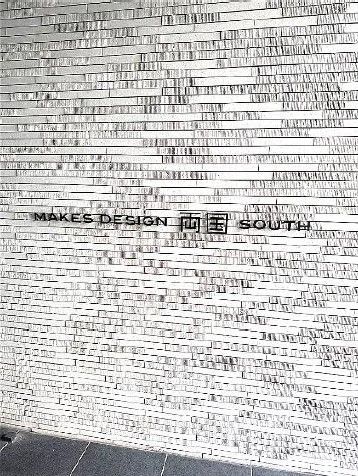 MAKES DESIGN 両国 SOUTH